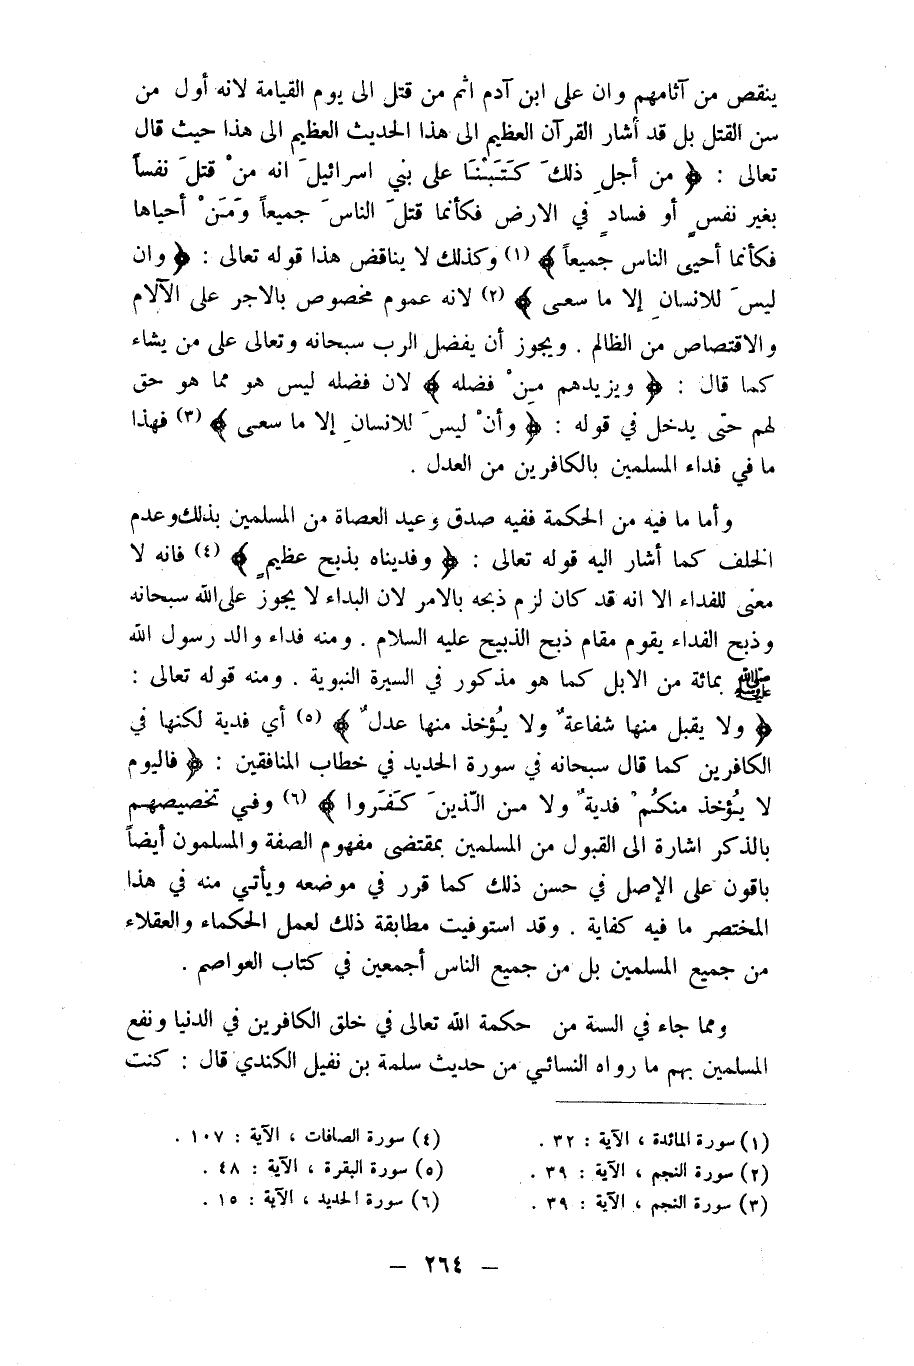 ينقص من آثامهم وان على ابن آدم اثم من قتل الى يوم القيامة لانه أول من
سن القتل بل قد أشار القرآن العظيم الى هذا الحديث العظيم الى هذا حيث قال
تعالى : ﴿ من أجلِ ذلكَ كَتَبْنَا على بني اسرائيلَ انه منْ قتلَ نفساً
بغير نفسٍ أو فسادٍ في الارض فكأنما قتلَ الناسَ جميعاً وَمَنْ أحياها
فكأنما أحيى الناس جميعاً ﴾ (١) وكذلك لا يناقض هذا قوله تعالى : ﴿ وان
ليسَ للانسانِ إلا ما سعى ﴾ (٢) لانه عموم مخصوص بالاجر على الآلام
والاقتصاص من الظالم . ويجوز أن يفضل الرب سبحانه وتعالى على من يشاء
كما قال : ﴿ ويزيدهم مِنْ فضله ﴾ لان فضله ليس هو مما هو حق
لهم حتى يدخل في قوله : ﴿ وأنْ ليسَ للانسانِ إلا ما سعى ﴾ (٣) فهذا
ما في فداء المسلمين بالكافرين من العدل .
وأما ما فيه من الحكمة ففيه صدق وعيد العصاة من المسلمين بذلك وعدم
الخلف كما أشار اليه قوله تعالى : ﴿ وفديناه بذبح عظيمٍ ﴾ (٤) فانه لا
معنى للفداء الا انه قد كان لزم ذبحه بالامر لان البداء لا يجوز على الله سبحانه
وذبح الفداء يقوم مقام ذبح الذبيح عليه السلام . ومنه فداء والد رسول الله
ﷺ بمائة من الابل كما هو مذكور في السيرة النبوية . ومنه قوله تعالى :
﴿ ولا يقبل منها شفاعةٌ ولا يُؤخذ منها عدلٌ ﴾ (٥) أي فدية لكنها في
الكافرين كما قال سبحانه في سورة الحديد في خطاب المنافقين : ﴿ فاليوم
لا يُؤخذ منكُمْ فديةٌ ولا من الّذينَ كَفَروا ﴾ (٦) وفي تخصيصهم
بالذكر اشارة الى القبول من المسلمين بمقتضى مفهوم الصفة والمسلمون أيضاً
باقون على الإصل في حسن ذلك كما قرر في موضعه ويأتي منه في هذا
المختصر ما فيه كفاية . وقد استوفيت مطابقة ذلك لعمل الحكماء والعقلاء
من جميع المسلمين بل من جميع الناس أجمعين في كتاب العواصم .
ومما جاء في السنة من حكمة الله تعالى في خلق الكافرين في الدنيا ونفع
المسلمين بهم ما رواه النسائي من حديث سلمة بن نفيل الكندي قال : كنت
(١) سورة المائدة ، الآية : ٣٢ .
(٢) سورة النجم ، الآية : ٣٩ .
(٣) سورة النجم ، الآية : ٣٩ .
(٤) سورة الصافات ، الآية : ١٠٧ .
(٥) سورة البقرة ، الآية : ٤٨ .
(٦) سورة الحديد ، الآية : ١٥ .
— ٢٦٤ —